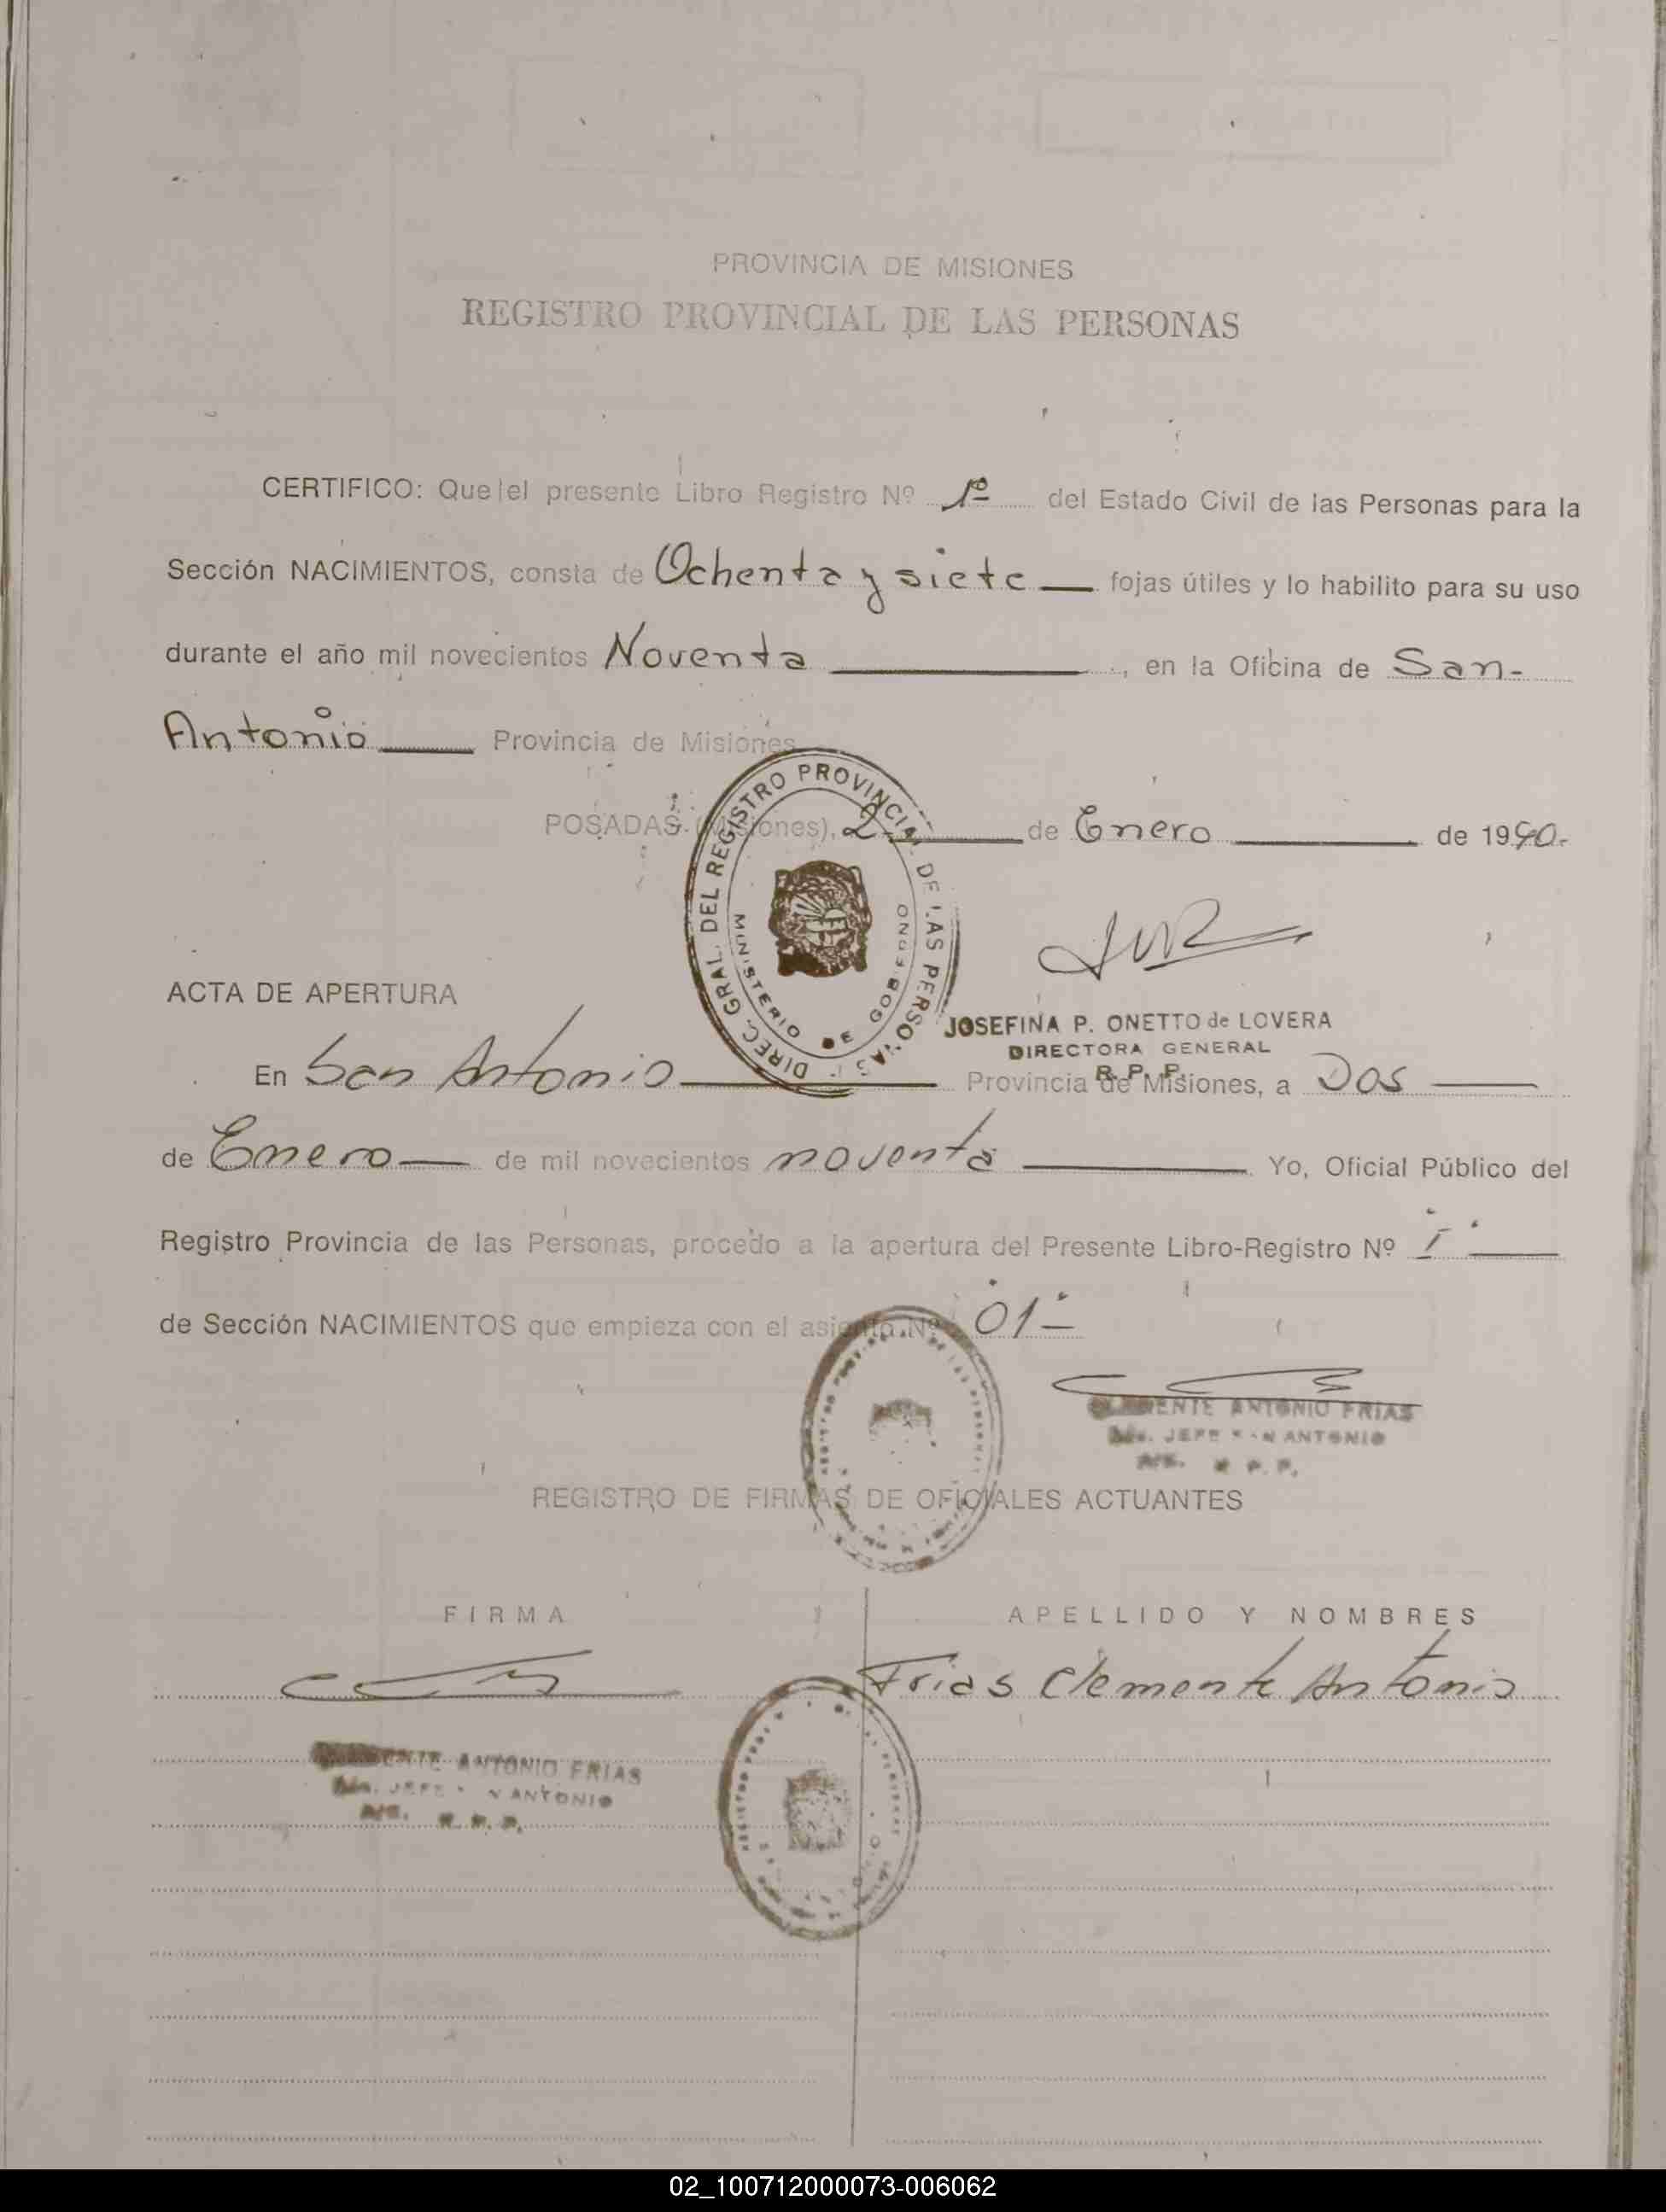 PROVINCIA DE MISIONES
REGISTRO PROVINCIAL DE LAS PERSONAS
CERTIFICO: Que el presente Libro Registro Nº 1º del Estado Civil de las Personas para la
Sección NACIMIENTOS, consta de Ochenta y siete fojas útiles y lo habilito para su uso
durante el año mil novecientos Noventa, en la Oficina de San-
Antonio Provincia de Misiones
POSADAS (Misiones), 2 de Enero de 1990.-
DIREC. GRAL. DEL REGISTRO PROVINCIAL DE LAS PERSONAS
MINISTERIO DE GOBIERNO
JOSEFINA P. ONETTO de LOVERA
DIRECTORA GENERAL
R. P. P.
ACTA DE APERTURA
En San Antonio Provincia de Misiones, a Dos
de Enero de mil novecientos noventa Yo, Oficial Público del
Registro Provincia de las Personas, procedo a la apertura del Presente Libro-Registro Nº I
de Sección NACIMIENTOS que empieza con el asiento Nº 01-
ANTONIO FRIAS
JEFE ANTONIO
R. P. P.
REGISTRO DE FIRMAS DE OFICIALES ACTUANTES
FIRMA APELLIDO Y NOMBRES
Frias Clemente Antonio
ANTONIO FRIAS
JEFE ANTONIO
R. P. P.
02_100712000073-006062